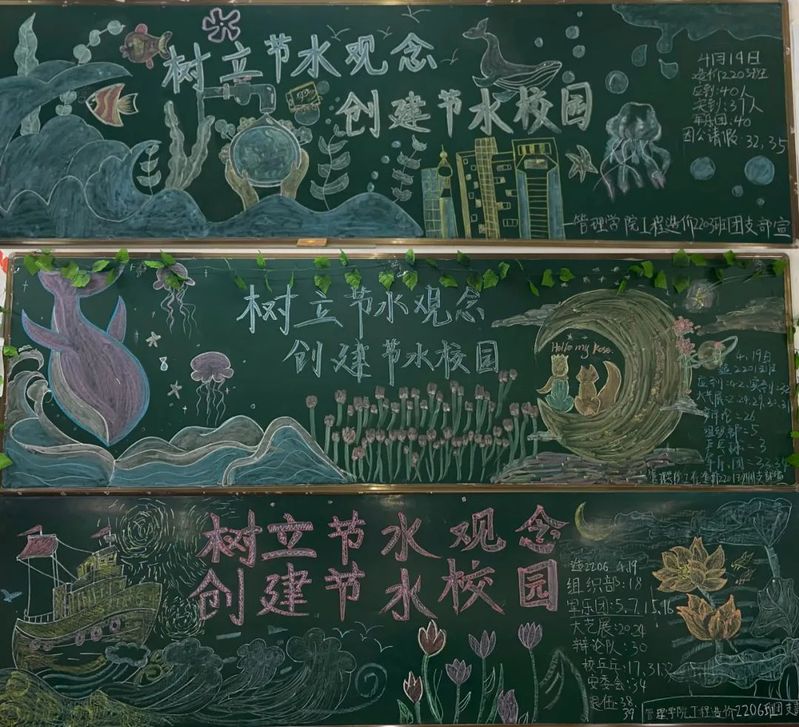 树立节水观念
创建节水校园
4月14日
造价2203班
应到:40人
实到:37人
军乐团:40
因公请假:32,35
管理学院工程造价2203班团支部宣
树立节水观念
创建节水校园
Hello my Rose.
4.19日
造2201班
树立节水观念
创建节水校园
造2206 4.19
组织部:18
军乐团:5,7,15,16
大艺展:20,24
辩论队:30
校乒乓:17,31
安委会:34
管理学院工程造价2206班团支